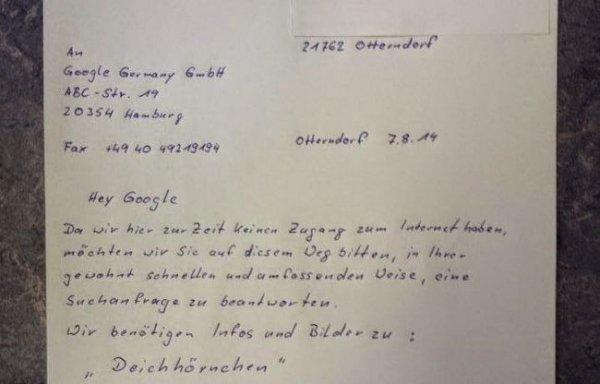 21762 Otterndorf
An
Google Germany GmbH
ABC-Str. 19
20354 Hamburg
Fax +49 40 49219194
Otterndorf 7.8.14
Hey Google
Da wir hier zur Zeit keinen Zugang zum Internet haben,
möchten wir Sie auf diesem Weg bitten, in Ihrer
gewohnt schnellen und umfassenden Weise, eine
Suchanfrage zu beantworten.
Wir benötigen Infos und Bilder zu :
„ Deichhörnchen "